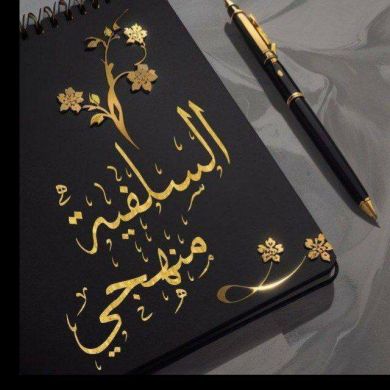 السلفية
منهجي